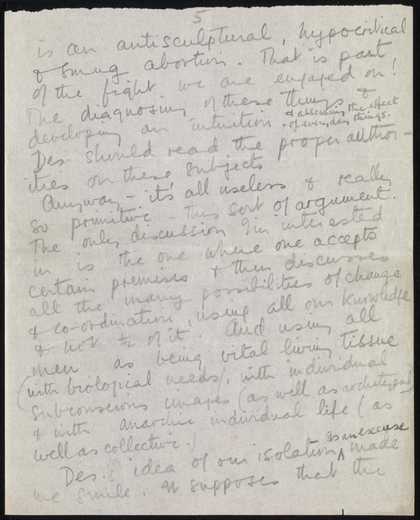 5
is an antisculptural, hypocritical
& smug abortion. That is part
of the fight we are engaged on!
The diagnosing of these things &
developing an intuition & assessing the effect
of everyday things.
Des should read the proper author-
ities on these subjects
Anyway - it's all useless & really
so primitive - this sort of argument.
The only discussion I'm interested
in is the one where one accepts
certain premises & then discusses
all the many possibilities of change
& co-ordination, using all our knowledge
& not ½ of it. And using all
men as being vital living tissue
(with biological needs), with individual
subconscious images (as well as archetypal)
& with anarchic individual life (as
well as collective.)
Des.' idea of our isolation as an excuse made
me smile. It supposes that the